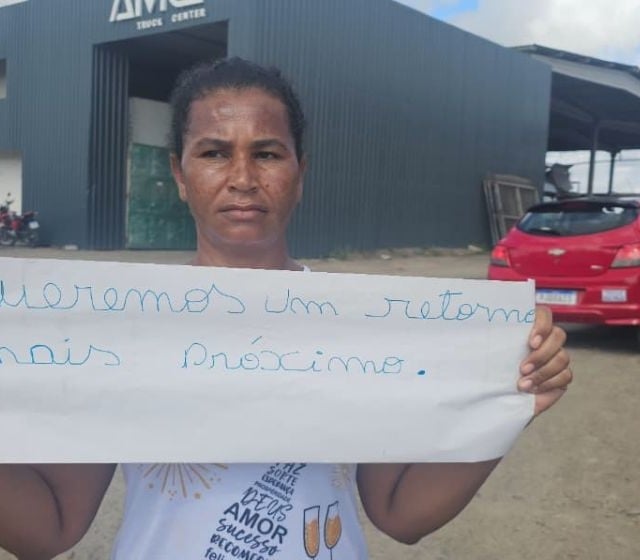 AMC
TRUCK CENTER
Queremos um retorno
mais próximo.
PAZ
SORTE
ESPERANÇA
PROSPERIDADE
DEUS
AMOR
sucesso
RECOMEÇO